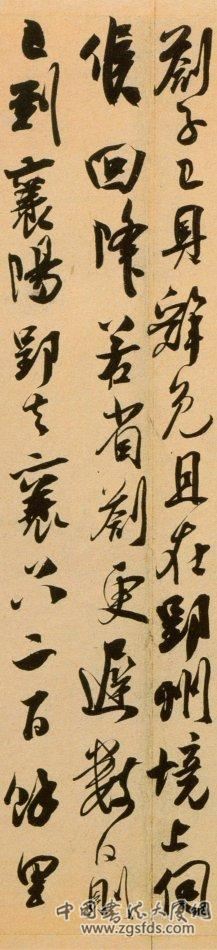 劄子已具辭免且在郢州境上伺
候回降若省劄更遲數日則
已到襄陽郢去襄只二百餘里
www.zgsfds.com